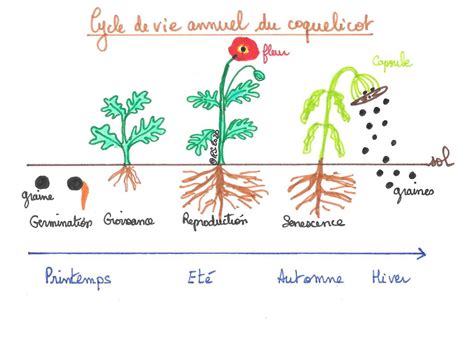 Cycle de vie annuel du coquelicot
fleur
Capsule
sol
graine
graines
Germination Croissance Reproduction Senescence
Printemps Eté Automne Hiver